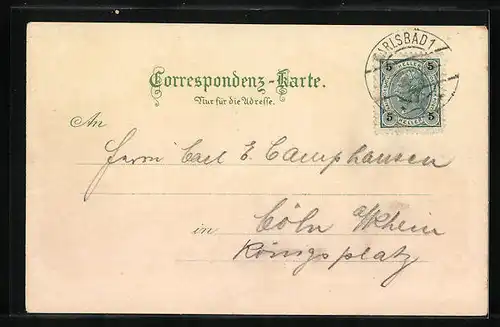 KARLSBAD 1
5 HELLER 5
5 HELLER 5
Correspondenz-Karte.
Nur für die Adresse.
An
Herrn Carl E. Camphausen
in Cöln a/Rhein
Königsplatz